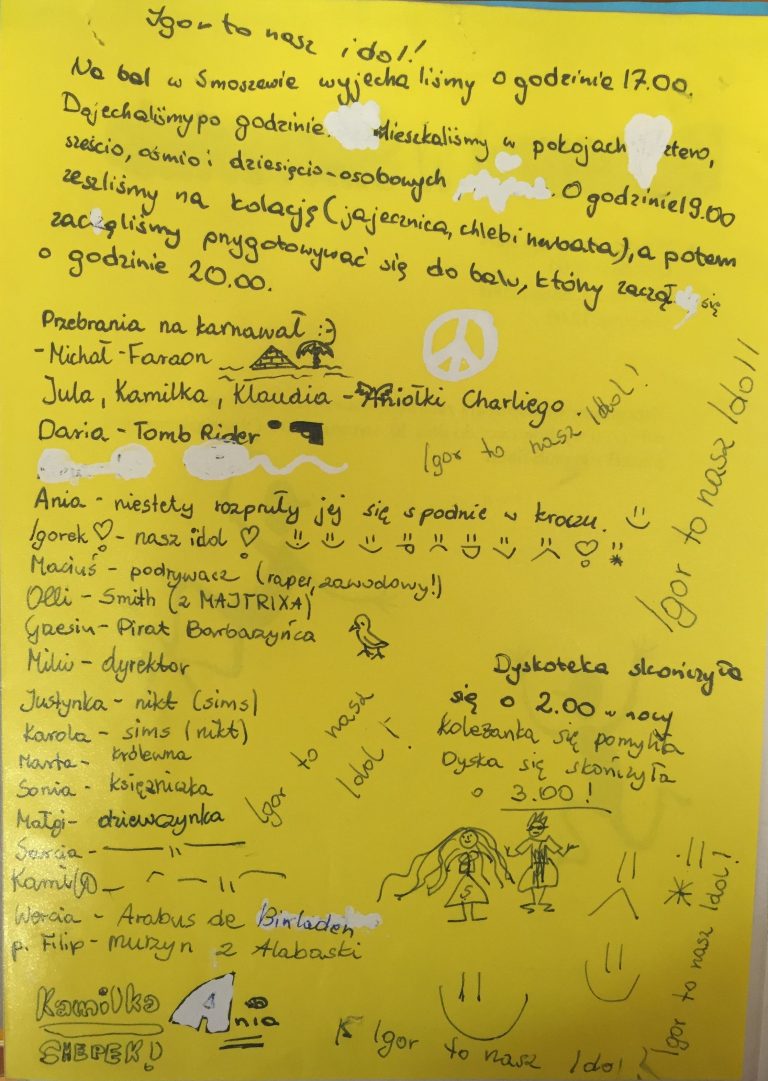 Igor to nasz idol!
Na bal w Smoszewie wyjechaliśmy o godzinie 17.00.
Dojechaliśmy po godzinie. Mieszkaliśmy w pokojach cztero,
sześcio, ośmio i dziesięcio-osobowych. O godzinie 19.00
zeszliśmy na kolację (jajecznica, chleb i herbata), a potem
zaczęliśmy przygotowywać się do balu, który zaczął się
o godzinie 20.00.
Przebrania na karnawał :-)
- Michał - Faraon
Jula, Kamilka, Klaudia - Aniołki Charliego
Daria - Tomb Rider
Igor to nasz Idol!
Igor to nasz Idol!!
Ania - niestety rozpruły jej się spodnie w kroczu.
Igorek ♡ - nasz idol ♡
Maciuś - podrywacz (raper, zawodowy!)
Olli - Smith (z MAJTRIXA)
Grzesiu - Pirat Barbarzyńca
Milu - dyrektor
Justynka - nikt (sims)
Karola - sims (nikt)
Marta - królewna
Sonia - księżniczka
Małgi - dziewczynka
Sarcia - —— " ——
Kamil - — " —
Wercia - Arabus de Binladen
p. Filip - Murzyn z Alabaski
Igor to nasz
Idol!
Dyskoteka skończyła
się o 2.00 w nocy
Koleżanka się pomyliła
Dyska się skończyła
o 3.00!
Igor to nasz Idol!
Kamilka
Ania
SHEPEK!
K Igor to nasz Idol!